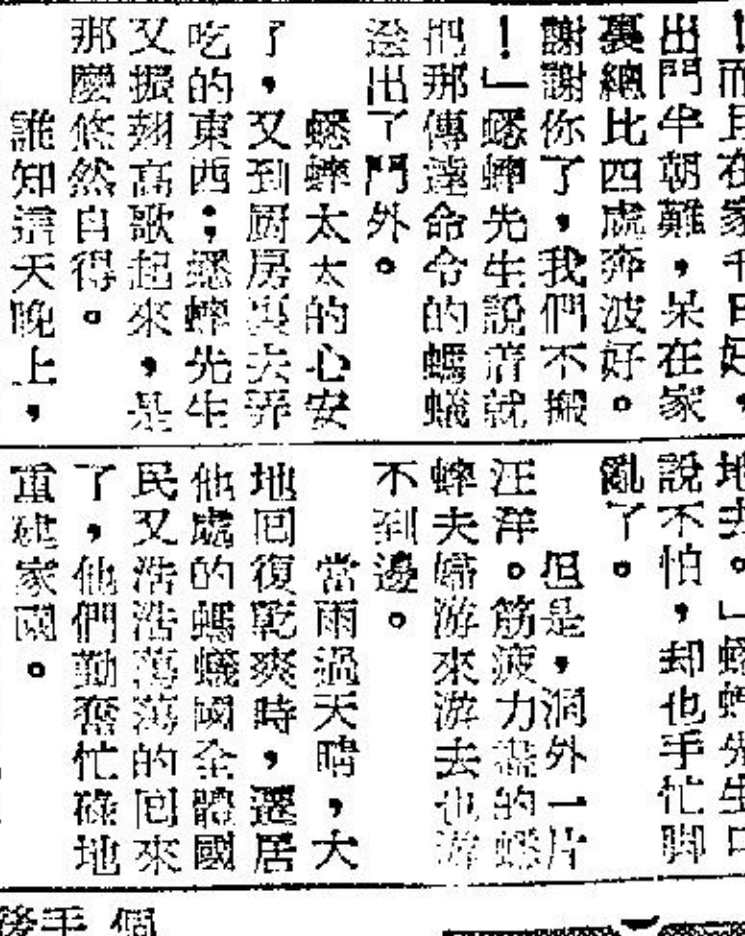 ！而且在家千日好，
出門半朝難，呆在家
裏總比四處奔波好。
謝謝你了，我們不搬
！」蟋蟀先生說着就
把那傳達命令的螞蟻
送出了門外。
蟋蟀太太的心安
了，又到厨房裏去弄
吃的東西；蟋蟀先生
又振翅高歌起來，是
那麼悠然自得。
誰知這天晚上，
地去。」蟋蟀先生口
說不怕，却也手忙脚
亂了。
但是，洞外一片
汪洋。筋疲力盡的蟋
蟀夫婦游來游去也游
不到邊。
當雨過天晴，大
地回復乾爽時，遷居
他處的螞蟻國全體國
民又浩浩蕩蕩的回來
了，他們勤奮忙碌地
重建家園。
個
手
後